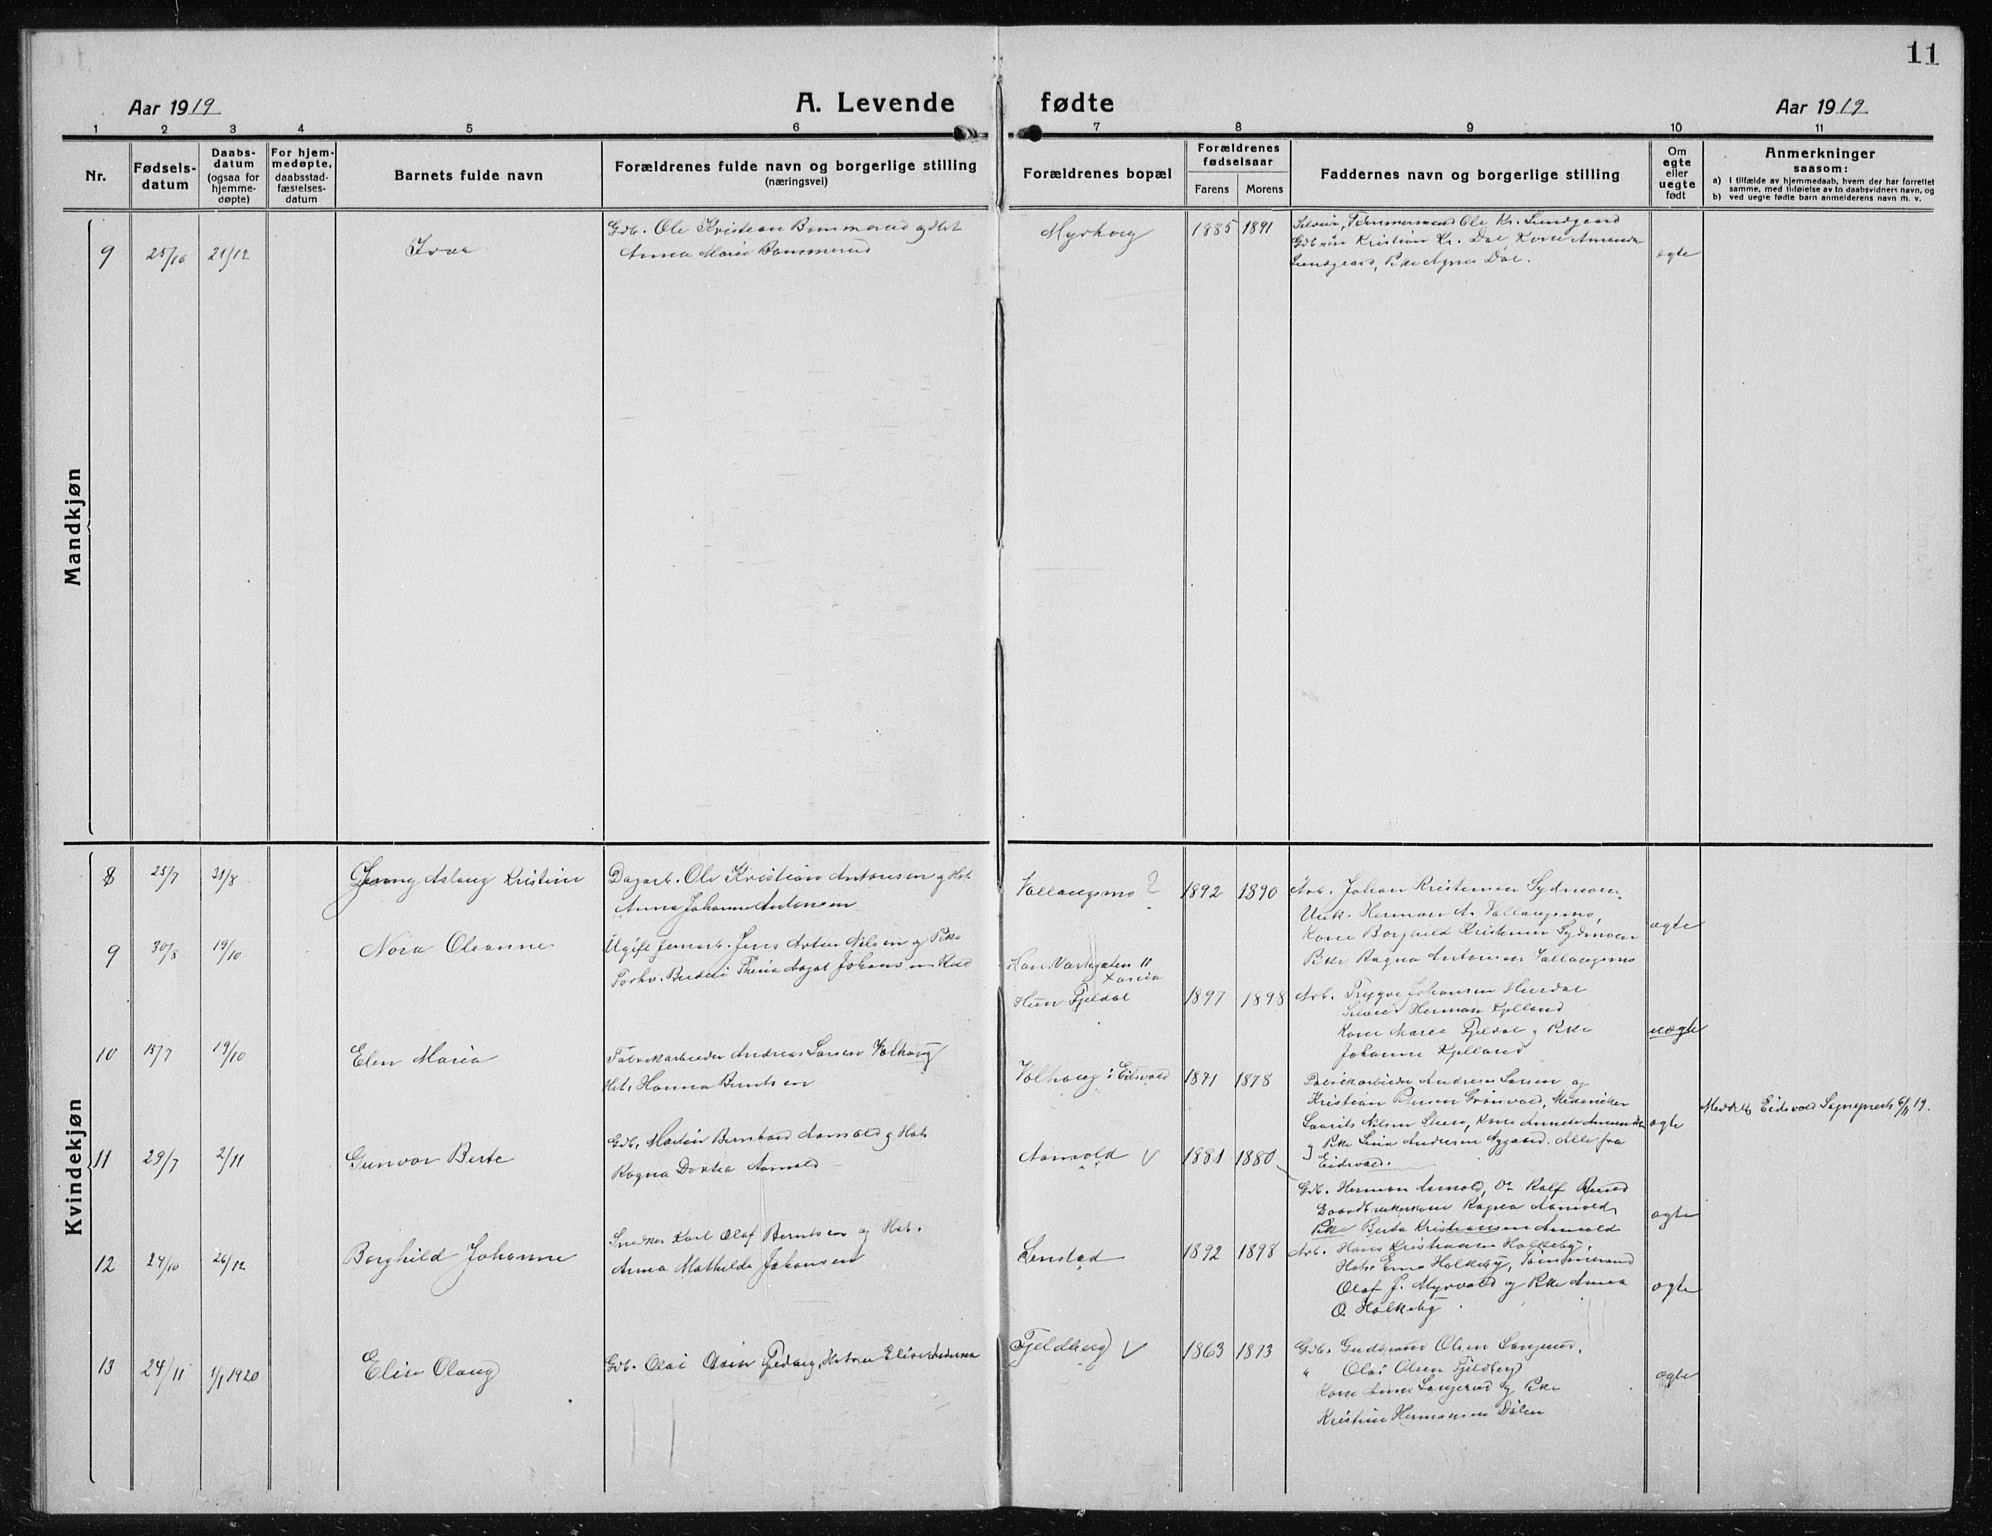 11
Aar 1919
A. Levende fødte
Aar 1919
1 2 3 4 5 6 7 8 9 10 11
Nr.
Fødselsdatum
Daabsdatum (ogsaa for hjemmedøpte)
For hjemmedøpte, daabsstadfæstelsesdatum
Barnets fulde navn
Forældrenes fulde navn og borgerlige stilling (næringsvei)
Forældrenes bopæl
Forældrenes fødselsaar
Farens
Morens
Faddernes navn og borgerlige stilling
Om egte eller uegte født
Anmerkninger saasom:
a) I tilfælde av hjemmedaab, hvem der har forrettet samme, med tilføielse av to daabsvidners navn, og
b) ved uegte fødte barn anmelderens navn m. v.
Mandkjøn
9 25/10 21/12
Gdb. Ole Kristian Bommerud og Hst
Anna Marie Bommerud
Myrhaug 1885 1891
Ole Kr. Sundgaard
Kristian Kr. Dal, Kone Amanda
Sundgaard, Pike Agnes Dal.
egte
Kvindekjøn
8 25/7 31/8
Jenny Aslaug Kristine
Dagarb. Ole Kristian Antonsen og Hst.
Anna Johanne Antonsen
Vallaugsmo ? 1892 1890
Arb. Johan Kristensen Sydmoen
Unk. Herman A. Vallaugsmo,
Kone Borghild Kristensen Sydmoen
Pike Ragna Antonsen Vallaugsmo
egte
9 30/8 19/10
Nora Oleanne
Ugift Jernarb. Jens Anton Nilsen og Pike
11
Hun Fjeldal 1897 1898
Arb. Trygve Johansen Hurdal
Herman Kjelland
Kone Maren Fjeldal og Pike
Johanne Kjelland
uegte
10 15/7 19/10
Elen Maria
Fabrikarbeider Andreas Larsen Volhaug
Hst. Hanna Berntsen
Volhaug i Eidsvold 1871 1878
Fabrikarbeider Andreas Larsen og
Kristian Grønvold, Mekaniker
Laurits Nilsen
og Pike Andersen Nygaard. Alle fra
Eidsvold.
egte
Eidsvold Sogneprest 6/11 19.
11 29/7 2/11
Gunvor Berte
Gdb. Martin Bernhard Aamold og Hst.
Ragna Dortea Aamold
Aamold V 1881 1880
Gdb. Herman Aamold, Do Rolf Ruud
Gaardbrukerkone Ragna Aamold,
Pike Berta Kristiansen Aamold
egte
12 24/10 26/12
Borghild Johanne
Snedker Karl Olaf Berntsen og Hst.
Anna Mathilde Johansen
Lenstad 1892 1898
Arb. Hans Kristiansen Holkeby,
Hst. Emma Holkeby, Tømmermand
Olaf J. Myrvold og Pike Anna
O. Holkeby.
egte
13 24/11 1/1 1920
Elise Olaug
Gdb. Olai Olsen Fjeldberg, Hstru Elise Andersen
Fjeldberg V 1863 1873
Gdb. Gudbrand Olsen Langerud,
" Olai Olsen Fjeldberg
Kone Anne Langerud og Pike
Kristine Hermansen Dølen
egte